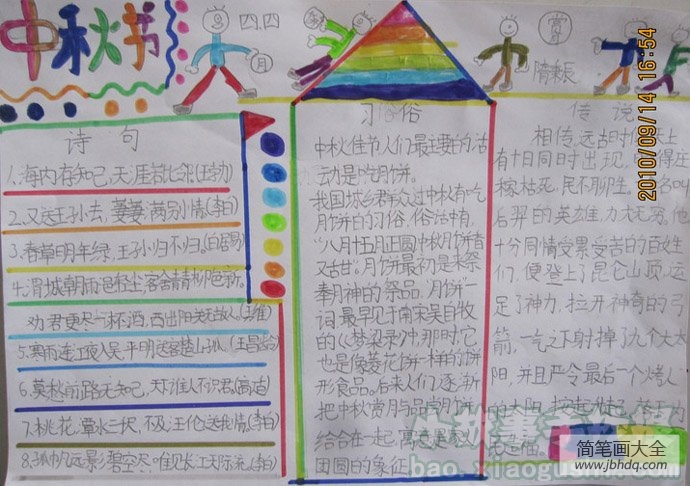 中秋节
四.四
月
賞
隋耒辰
2010/09/14 16:54
诗 句
1.海内存知己,天涯若比邻.(王勃)
2.又送王孙去,萋萋满别情.(李白)
3.春草明年绿,王子孙归不归.(白居易)
4.渭城朝雨邑轻尘,客舍青青柳色新.
劝君更尽一杯酒,西出阳关无故人.(王维)
5.寒雨连江夜入吴,平明送客楚山孤.(王昌龄)
6.莫愁前路无知己,天下谁人不识君.(高适)
7.桃花潭水三千尺,不及王伦送我情.(李白)
8.孤帆远影碧空尽.唯见长江天际流.(李白)
习俗
中秋佳节人们最主要的活
动是吃月饼。
我国城乡群众过中秋有吃
月饼的习俗,俗话中有:
“八月十五月正圆中秋月饼香
又甜”。月饼最初是来祭
奉月神的祭品,月饼一
词最早见于南宋吴自牧
的《梦梁录》中,那时,它
也是像菱花饼一样的饼
形食品。后来人们逐渐
把中秋赏月与品尝月饼
结合在一起,寓意家人
团圆的象征
传 说
相传,远古时候天上
有十日同时出现,
稼枯死,民不聊生,
后羿的英雄力大无穷,他
十分同情受累受苦的百姓
们,便登上了昆仑山顶,运
足了神力,拉开神奇的弓
箭,一气之下射掉了九个太
阳,并且严令最后一个
太阳,按
民造福。
bao.xiaogushi.com
简笔画大全
www.jbhdq.com